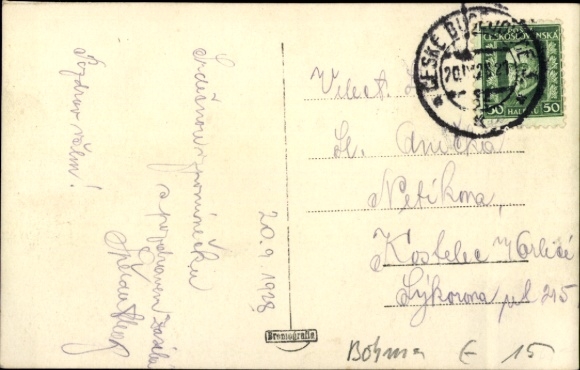 Pozdrav všem!
Srdečnou vzpomínku
s pozdravem zasílá
20.9.1928
Velect.
Sl. Anička
Netíkova,
Kostelec n/Orlicí
Lýkova pl 215
ČESKÉ BUDĚJOVICE
ČESKOSLOVENSKA
50 HALÉŘŮ 50
Bromografia
Böhma E 15